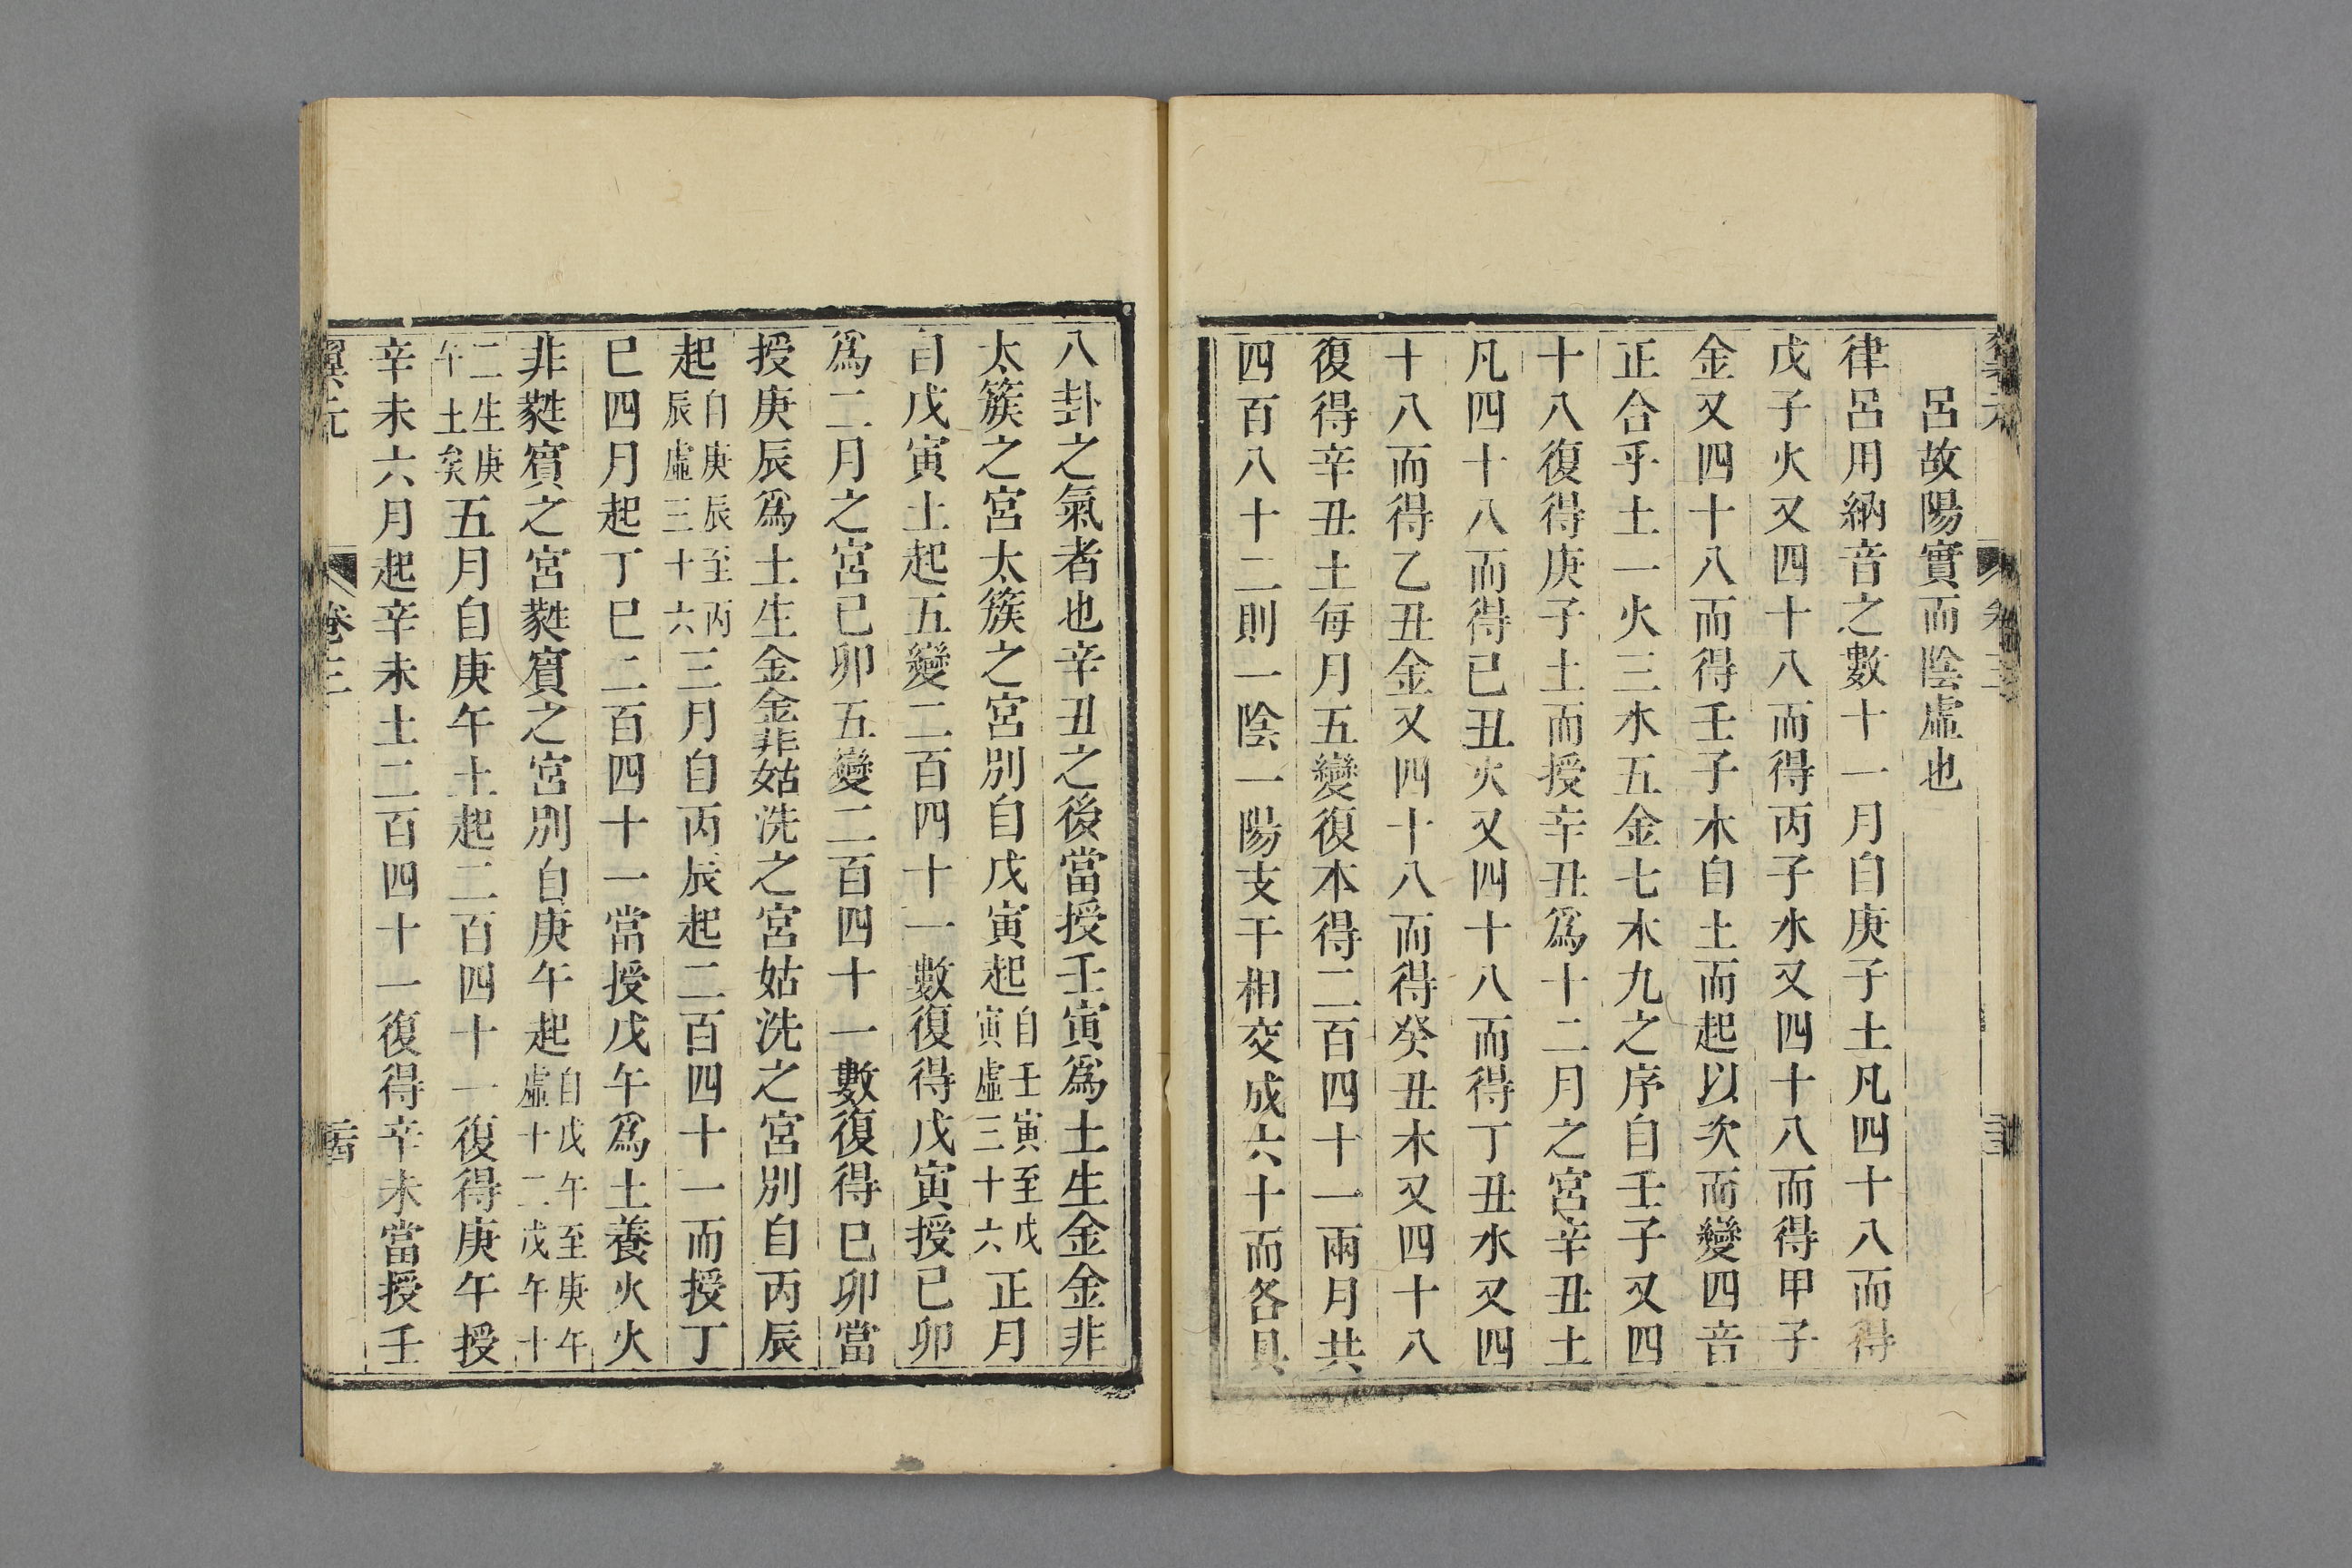 呂故陽實而陰虛也
律呂用納音之數十一月自庚子土凡四十八而得
戊子火又四十八而得丙子水又四十八而得甲子
金又四十八而得壬子木自土而起以次而變四音
正合乎土一火三水五金七木九之序自壬子又四
十八復得庚子土而授辛丑爲十二月之宮辛丑土
凡四十八而得已丑火又四十八而得丁丑水又四
十八而得乙丑金又四十八而得癸丑木又四十八
復得辛丑土每月五變復本得二百四十一兩月共
四百八十二則一陰一陽支干相交成六十而各具
八卦之氣者也辛丑之後當授壬寅爲土生金金非
太簇之宮太簇之宮別自戊寅起自壬寅至戊寅虛三十六正月
自戊寅土起五變二百四十一數復得戊寅授已卯
爲二月之宮已卯五變二百四十一數復得已卯當
授庚辰爲土生金金非姑洗之宮姑洗之宮別自丙辰
起自庚辰至丙辰虛三十六三月自丙辰起二百四十一而授丁
巳四月起丁巳二百四十一當授戊午爲土養火火
非蕤賓之宮蕤賓之宮別自庚午起自戊午至庚午虛十二戊午十
二生庚午土矣五月自庚午土起二百四十一復得庚午授
辛未六月起辛未土二百四十一復得辛未當授壬
翼元 卷三